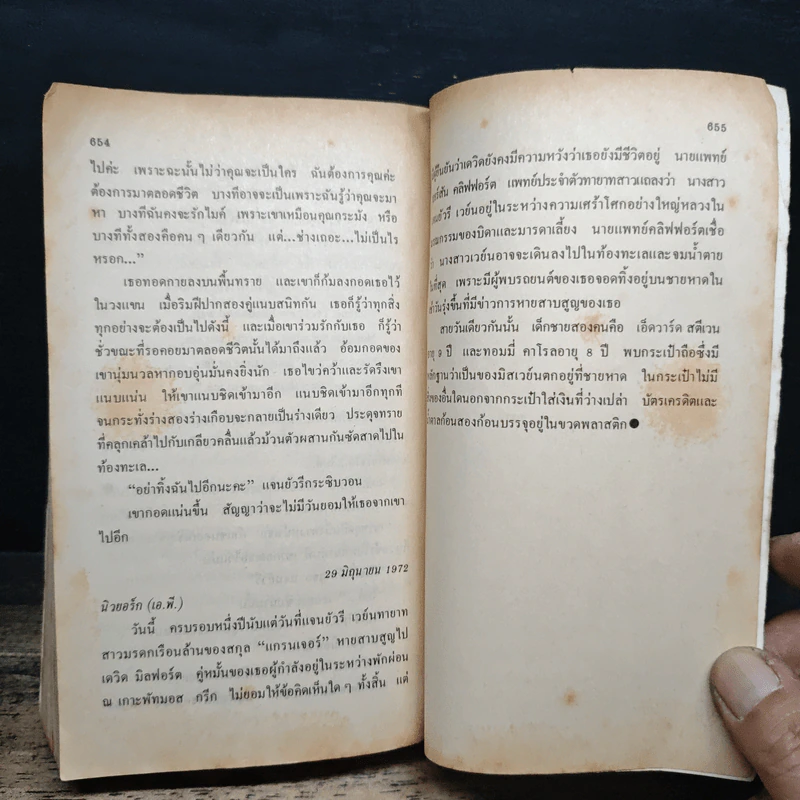 654
ไปค่ะ เพราะฉะนั้นไม่ว่าคุณจะเป็นใคร ฉันต้องการคุณค่ะ
ต้องการมาตลอดชีวิต บางทีอาจจะเป็นเพราะฉันรู้ว่าคุณจะมา
หา บางทีฉันคงจะรักไมค์ เพราะเขาเหมือนคุณกระมัง หรือ
บางทีทั้งสองคือคน ๆ เดียวกัน แต่...ช่างเถอะ...ไม่เป็นไร
หรอก...”
เธอทอดกายลงบนพื้นทราย และเขาก็ก้มลงกอดเธอไว้
ในวงแขน เมื่อริมฝีปากสองคู่แนบสนิทกัน เธอก็รู้ว่าทุกสิ่ง
ทุกอย่างจะต้องเป็นไปดังนี้ และเมื่อเขาร่วมรักกับเธอ ก็รู้ว่า
ชั่วขณะที่รอคอยมาตลอดชีวิตนั้นได้มาถึงแล้ว อ้อมกอดของ
เขานุ่มนวลหากอบอุ่นมั่นคงยิ่งนัก เธอไขว่คว้าและรัดรึงเขา
แนบแน่น ให้เขาแนบชิดเข้ามาอีก แนบชิดเข้ามาอีกทุกที
จนกระทั่งร่างสองร่างเกือบจะกลายเป็นร่างเดียว ประดุจทราย
ที่คลุกเคล้าไปกับเกลียวคลื่นแล้วม้วนตัวผสานกันซัดสาดไปใน
ท้องทะเล...
“อย่าทิ้งฉันไปอีกนะคะ” แจนยัวรีกระซิบวอน
เขากอดแน่นขึ้น สัญญาว่าจะไม่มีวันยอมให้เธอจากเขา
ไปอีก
29 มิถุนายน 1972
นิวยอร์ก (เอ.พี.)
วันนี้ ครบรอบหนึ่งปีนับแต่วันที่แจนยัวรี เวย์นทายาท
สาวมรดกเรือนล้านของสกุล “แกรนเจอร์” หายสาบสูญไป
เดวิด มิลฟอร์ด คู่หมั้นของเธอผู้กำลังอยู่ในระหว่างพักผ่อน
ณ เกาะพัทมอส กรีก ไม่ยอมให้ข้อคิดเห็นใด ๆ ทั้งสิ้น แต่
655
ยืนยันว่าเดวิดยังคงมีความหวังว่าเธอยังมีชีวิตอยู่ นายแพทย์
คลิฟฟอร์ด แพทย์ประจำตัวทายาทสาวแถลงว่า นางสาว
เวย์นอยู่ในระหว่างความเศร้าโศกอย่างใหญ่หลวงใน
ของบิดาและมารดาเลี้ยง นายแพทย์คลิฟฟอร์ดเชื่อ
ว่า นางสาวเวย์นอาจจะเดินลงไปในท้องทะเลและจมน้ำตาย
ในที่สุด เพราะมีผู้พบรถยนต์ของเธอจอดทิ้งอยู่บนชายหาดใน
วันรุ่งขึ้นที่มีข่าวการหายสาบสูญของเธอ
สายวันเดียวกันนั้น เด็กชายสองคนคือ เอ็ดวาร์ด สตีเวน
อายุ 9 ปี และทอมมี่ คาโรลอายุ 8 ปี พบกระเป๋าถือซึ่งมี
หลักฐานว่าเป็นของมิสเวย์นตกอยู่ที่ชายหาด ในกระเป๋าไม่มี
อื่นใดนอกจากกระเป๋าใส่เงินที่ว่างเปล่า บัตรเครดิตและ
น้ำตาลก้อนสองก้อนบรรจุอยู่ในขวดพลาสติก●